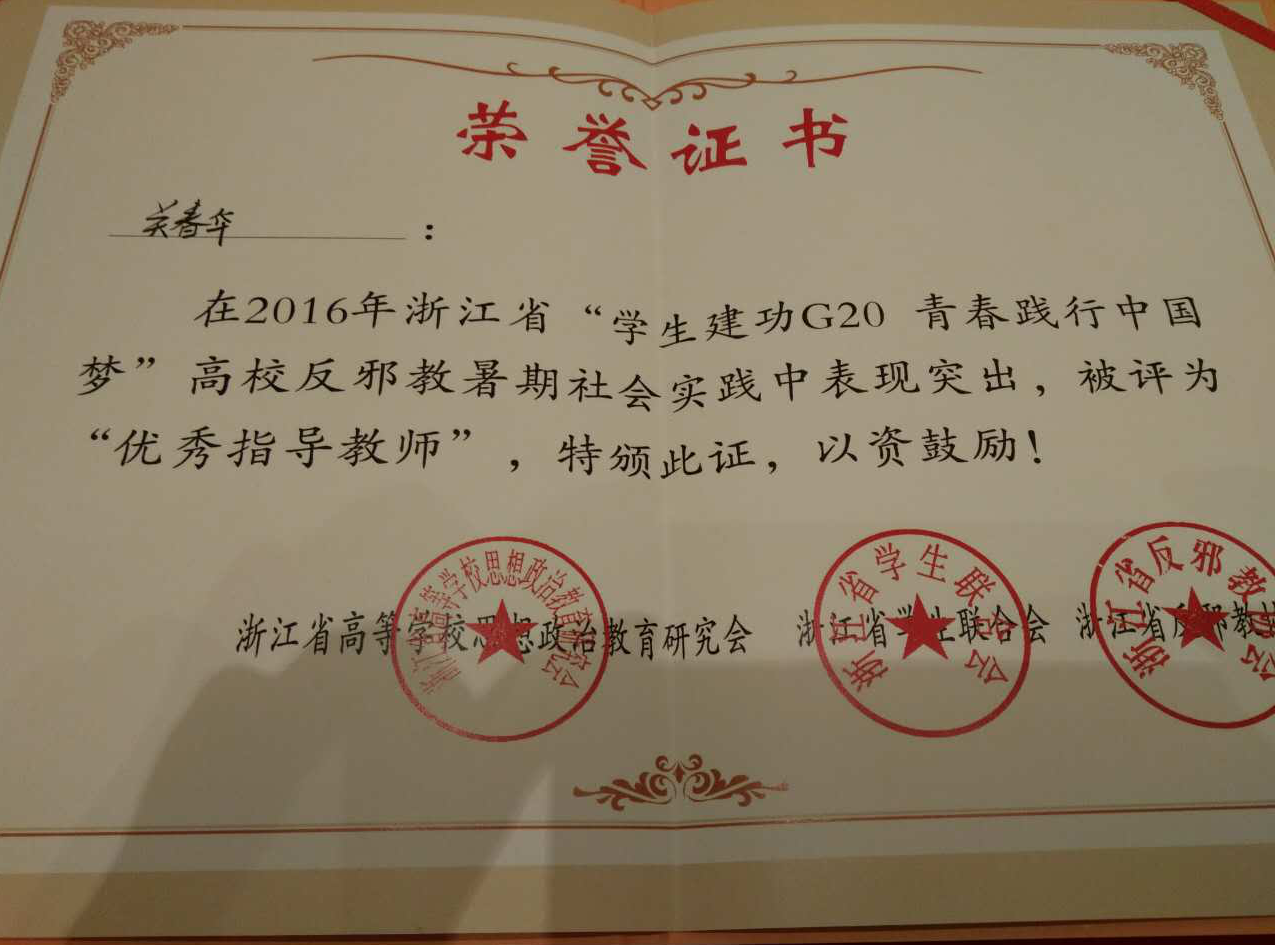 荣誉证书
关春华：
在2016年浙江省“学生建功G20 青春践行中国
梦”高校反邪教暑期社会实践中表现突出，被评为
“优秀指导教师”，特颁此证，以资鼓励！
浙江省高等学校思想政治教育研究会 浙江省学生联合会 浙江省反邪教协
浙江省高等学校思想政治教育研究会
浙江省学生联合会
浙江省反邪教协会